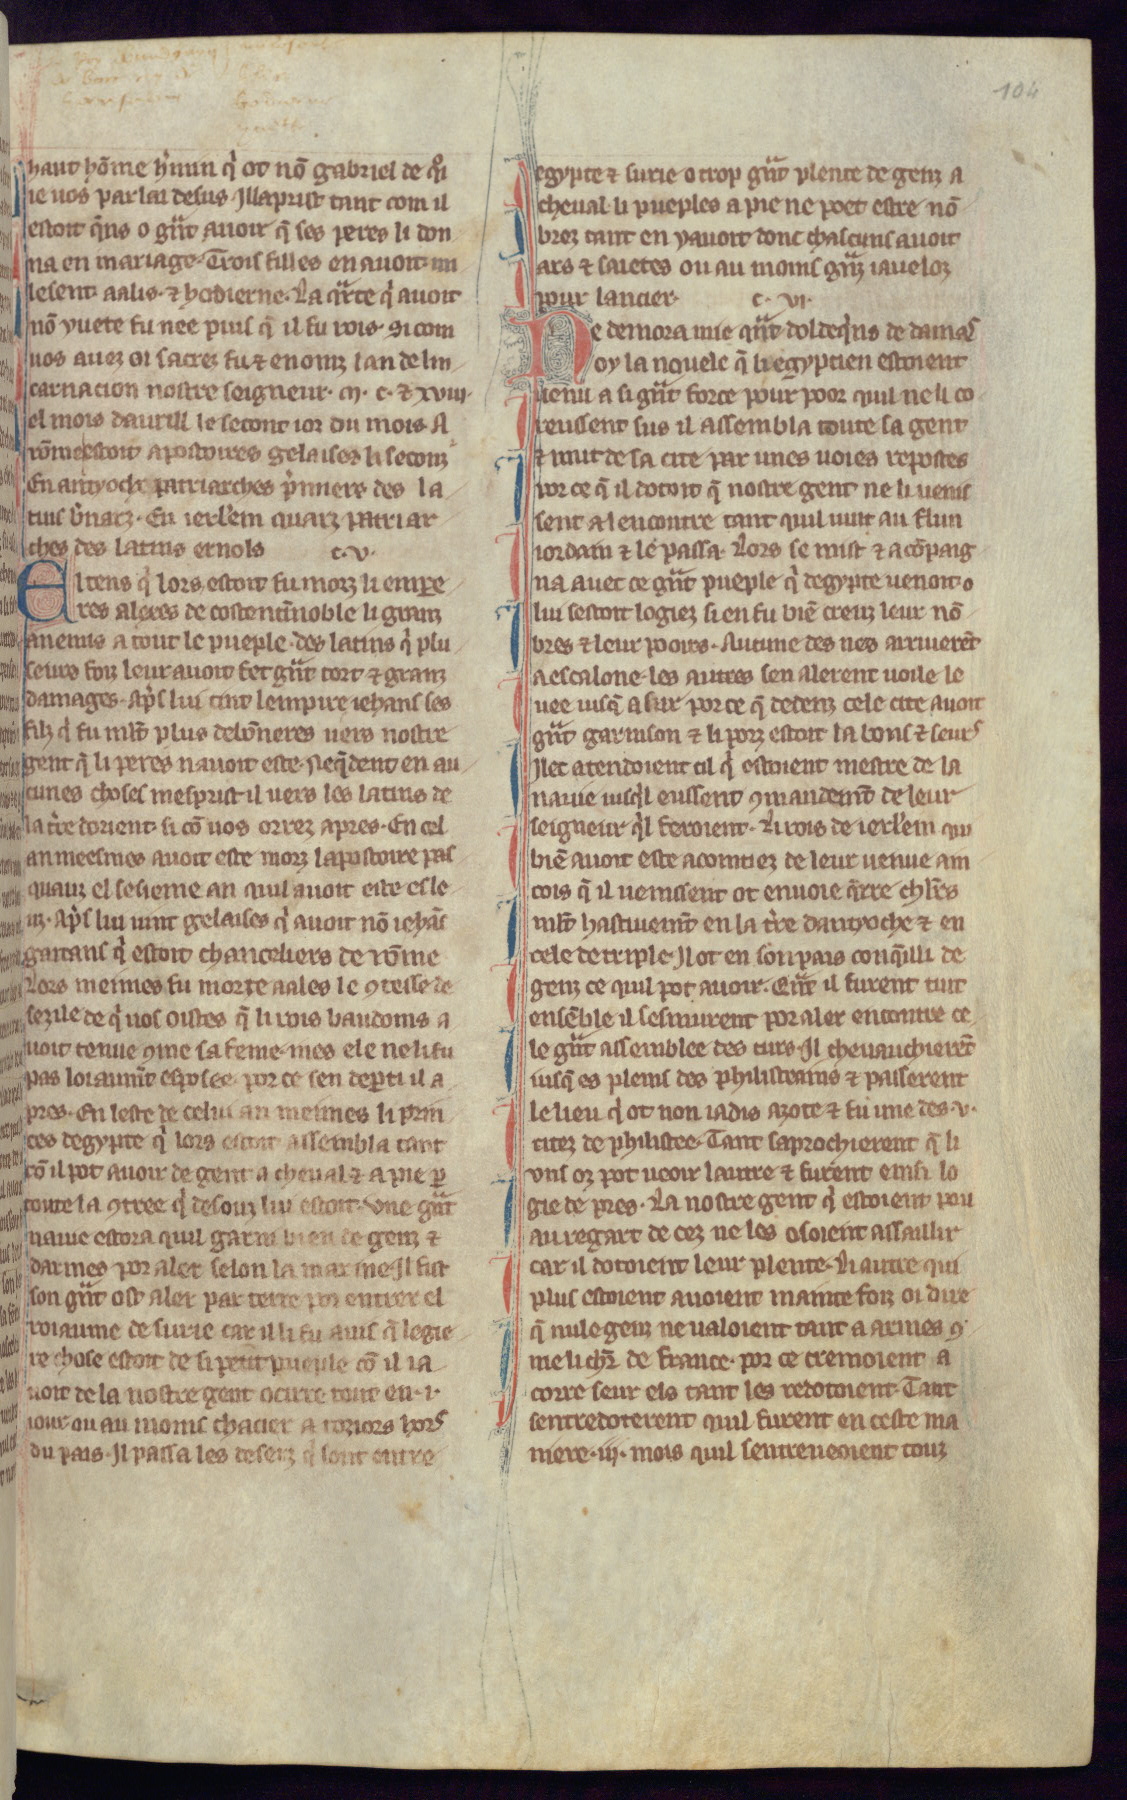 104
haut hõme h'min q̇ ot nõ gabriel de q̇i
ie uos parlai desus. Il la prist tant com il
estoit q̃ns o gr̃t auoir q̃ ses peres li don
na en mariage. Trois filles en auoit mi
lesent aalis. ⁊ hodierne. La q̃rte q̇ auoit
nõ yuete fu nee puis q̃ il fu rois. Si com
uos auez oi sacrez fu ⁊ enoinz lan de lin
carnacion nostre seigneur. m. c. ⁊ xviii.
el mois dauril le secont ior du mois. A
rõme estoit apostoires gelaises li seconz
En antyoche patriarches p̃miers des la
tins b'narz. En ierl'em quarz patriar
ches des latins ernols c. v.
El tens q̇ lors estoit fu morz li empe
reres alexes de costentĩnoble li granz
anemis a tout le pueple des latins q̇ plu
seurs foiz leur auoit fet gr̃t tort ⁊ granz
damages. Ap̃s lui tint lempire iehans ses
filz q̇ fu ml't plus debõneres uers nostre
gent q̃ li peres nauoit este. Neq̃dent en au
cunes choses mesprist il uers les latins de
la t're dorient si cõ uos orrez apres. En cel
an meesmes auoit este morz lapostoire pas
quauz el sesieme an quil auoit este esle
uz. Ap̃s lui uint gelaises q̇ auoit nõ iehãs
gaitans q̇ estoit chanceliers de rõme
Lors meimes fu morte aales le 9tesse de
sezile de q̇ uos oistes q̃ li rois baudoins a
uoit tenue 9me sa feme. mes ele ne li fu
pas loiaumt̃ esposee. por ce sen dep̱ti il a
pres. En leste de celui an meimes li prin
ces degypte q̇ lors estoit assembla tant
cõ il pot auoir de gent a cheual ⁊ a pie p̱
toute la 9tree q̇ desouz lui estoit. Vne gr̃t
nauie estora quil garni bien de genz ⁊
darmes por aler selon la marine. Il fist
son gr̃t ost aler par terre por entrer el
roiaume de surie car il li fu auis q̃ legie
re chose estoit de si petit pueple cõ il ia
uoit de la nostre gent ocirre tout en .i.
iour ou au moins chacier a toziors hors
du pais. Il passa les deserz q̇ sont entre
egypte ⁊ surie o trop gr̃t plente de genz a
cheual. li pueples a pie ne poet estre nõ
brez tant en y auoit donc chascuns auoit
ars ⁊ saietes ou au moins gr̃nz iaueloz
pour lancier. c. vi.
Ne demora mie gr̃t. doldeq̃ns de damas
oy la nouele q̃ li egyptien estoient
uenu a si gr̃t force pour poor quil ne li co
reussent sus il assembla toute sa gent
⁊ muit de sa cite par unes uoies repostes
por ce q̃ il dotoit q̃ nostre gent ne li uenis
sent a lencontre tant quil uint au flun
iordain ⁊ le passa. Lors se mist ⁊ acõpaig
na auec ce gr̃t pueple q̇ degypte uenoit. o
lui sestoit logiez si en fu biẽ creuz leur nõ
bres ⁊ leur pooirs. Aucune des nes arriuerẽt
a escalone. les autres sen alerent uoile le
uee iusq̃ a sur por ce q̃ dedenz cele cite auoit
gr̃t garnison ⁊ li porz estoit la bons ⁊ seurs
Ilec atendoient cil q̇ estoient mestre de la
nauie iusq̃l eussent 9mandemt̃ de leur
seigneur q̃l feroient. Li rois de ierl'em qui
biẽ auoit este acointiez de leur uenue ain
cois q̃ il uenissent ot enuoie q̃rre chl'rs
ml't hastiuemt̃ en la t're dantyoche ⁊ en
cele de triple. Il ot en son pais conq̃illi de
genz ce quil pot auoir. Q̃nt il furent tuit
ensẽble il sesmurent por aler encontre ce
le gr̃t assemblee des turs. Il cheuauchierẽt
iusq̃ es pleins des philisteains ⁊ passerent
le lieu q̇ ot non iadis azote ⁊ fu une des .v.
citez de philistee. Tant saprochierent q̃ li
uns oz pot ueoir lautre ⁊ furent einsi lo
gie de pres. La nostre gent q̇ estoient pou
au regart de cez ne les osoient assaillir
car il dotoient leur plente. Li autre qui
plus estoient auoient mainte foiz oi dire
q̃ nule genz ne ualoient tant a armes 9
me li chr̃. de france. por ce cremoient a
corre seur els tant les redotoient. Tant
sentredoterent quil furent en ceste ma
niere .iij. mois quil sentreueoient touz